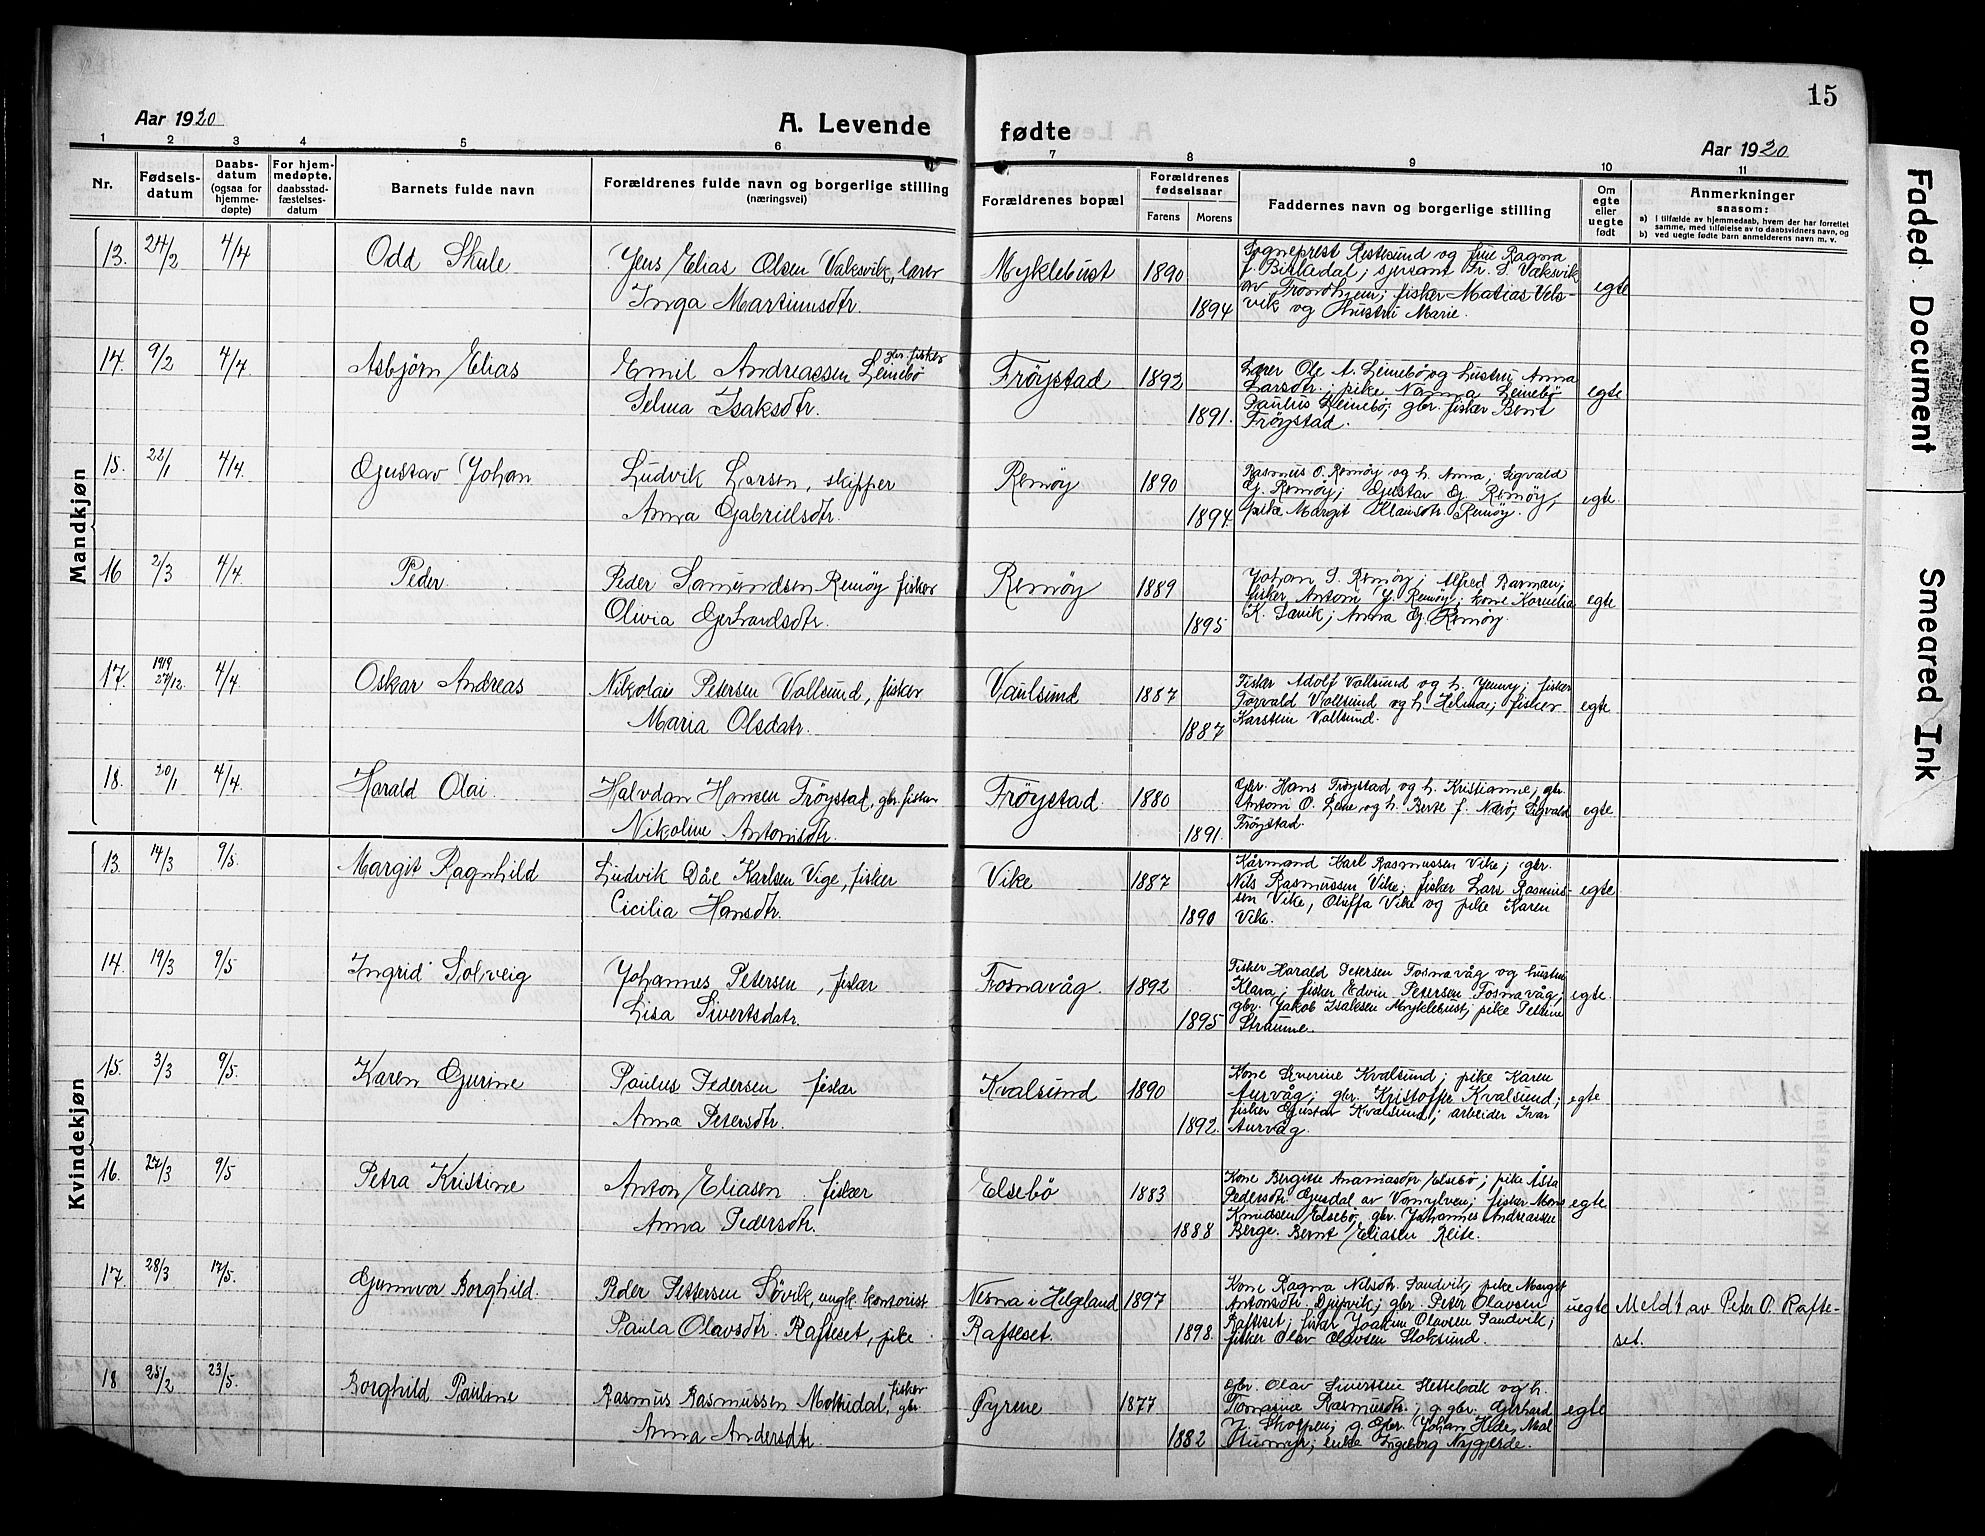 15
Aar 1920
A. Levende fødte
Aar 1920
1 2 3 4 5 6 7 8 9 10 11
Nr.
Fødsels-
datum
Daabs-
datum
(ogsaa for
hjemme-
døpte)
For hjem-
medøpte,
daabsstad-
fæstelses-
datum
Barnets fulde navn
Forældrenes fulde navn og borgerlige stilling
(næringsvei)
Forældrenes bopæl
Forældrenes
fødselsaar
Farens Morens
Faddernes navn og borgerlige stilling
Om
egte
eller
uegte
født
Anmerkninger
saasom:
a) I tilfælde av hjemmedaab, hvem der har forrettet
samme, med tilføielse av to daabsvidners navn, og
b) ved uegte født barn anmelderens navn m. v.
Mandkjøn
13. 24/2 4/4 Odd Skule
Jens Elias Olsen Vaksvik, lærer
Inga Martinusdtr.
Myklebust 1890
1894
Sogneprest Restesund og frue Ragna
f. Birkedal; sersant Fr. S. Vaksvik
av Trondhjem; fisker Matias Vels-
vik og hustru Marie.
egte
14. 9/2 4/4 Asbjørn Elias
Emil Andreassen Leinebø gbr. fisker
Selma Isaksdtr.
Frøystad 1892
1891.
Lærer Ole A. Leinebø og hustru Anna
Larsdtr.; pike Nanna Leinebø
Paulus Leinebø; gbr. fisker Bernt
Frøystad.
egte
15. 22/1 4/4. Gustav Johan
Ludvik Larsen, skipper
Anna Gabrielsdtr.
Remøy 1890
1894.
Rasmus O. Remøy og h. Anna; Sigvald
G. Remøy; Gustav G. Remøy,
pike Margit Klausdtr. Remøy.
egte.
16 2/3 4/4. Peder.
Peder Samundsen Remøy fisker
Olivia Gerhardsdtr.
Remøy 1889
1895
Johan S. Remøy; Alfred Barman;
fisker Antom J. Remøy; kone Kornelia
K. Sævik; Anna G. Remøy.
egte
17. 1919 27/12. 4/4 Oskar Andreas
Nikolai Petersen Vollsund, fisker
Maria Olsdatr.
Vaulsund 1887
1887
Fisker Adolf Vollsund og h. Jenny; fisker
Torvald Vollsund og h. Helma; fisker
Karstein Vollsund.
egte
18. 20/1 4/4 Harald Olai.
Halvdan Hansen Frøystad, gbr. fisker
Nikoline Antonsdtr.
Frøystad 1880
1891.
Gbr. Hans Frøystad og h. Kristianne; gbr.
Antom O. Leine og h. Berte f. Nærø; Sigvald
Frøystad.
egte
Kvindekjøn
13. 14/3 9/5. Margit Ragnhild
Ludvik Dåe Karlsen Vige, fisker
Cicilia Hansdtr.
Vike 1887
1890
Kårmand Karl Rasmussen Vike; gbr.
Nils Rasmussen Vike; fisker Lars Rasmus-
sen Vike, Oluffa Vike og pike Karen
Vike.
egte.
14. 19/3 9/5 Ingrid Solveig
Johannes Petersen, fisker
Lisa Sivertsdatr.
Fosnavåg. 1892
1895
Fisker Harald Petersen Fosnavåg og hustru
Klara; fisker Edvin Petersen Fosnavåg;
gbr. Jakob Isaksen Myklebust; pike Petrine
Straume.
egte.
15. 3/3 9/5. Karen Gurine
Paulus Pedersen fisker
Anna Petersdtr.
Kvalsund 1890
1892.
Kone Severine Kvalsund; pike Karen
Aurvåg; gbr. Kristoffer Kvalsund;
fisker Gustav Kvalsund; arbeider Ivar
Aurvåg.
egte
16. 27/3 9/5 Petra Kristine
Anton Eliasen fisker
Anna Pedersdtr.
Elsebø 1883
1888
Kone Bergitte Ananiasdtr Elsebø; pike Åsta
Pedersdtr. Gusdal av Vanylven; fisker Mons
Knudsen Elsebø, gbr. Johannes Andreassen
Berge. Bernt Eliasen Reite.
egte
17. 28/3 17/5. Gunnvor Borghild.
Peder Pettersen Søvik, ungk. kontorist
Paula Olavsdtr. Rafteset, pike.
Nesna i Helgeland 1897
Rafteset. 1898.
Kone Ragna Nilsdtr. Sandvik; pike Margit
Antonsdtr. Djupvik; gbr. Peter Olavsen
Rafteset; fisker Joakim Olavsen Sandvik;
fisker Olav Olavsen Stoksund.
uegte
Meldt av Peter O. Rafte-
set.
18 25/2 23/5. Borghild Pauline
Rasmus Rasmussen Moltudal, fisker gbr.
Anna Andersdtr.
Øyrene 1877
1882
Gbr. Olav Sivertsen Hettebak og h.
Tomasine Rasmusdtr.; g. gbr. Gerhard
J. Skoppen; g. Gbr. Johan Hide, Mol
Ingeborg Nygjerde.
egte
Faded Document
Smeared Ink